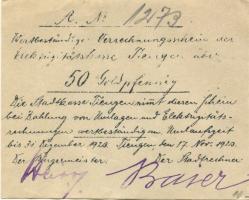 A. Nº 12173
Wertbeständige Verrechnungsschein der
Elektrizitätskasse Tiengen über
50 Goldpfennig
Die Stadtkasse Tiengen nimmt diesen Schein
bei Zahlung von Umlagen und Elektrizitäts-
rechnungen wertbeständig an. Umlaufzeit
bis 31. Dezember 1923. Tiengen den 17. Nov. 1923.
Der Bürgermeister: Der Stadtrechner
Baser